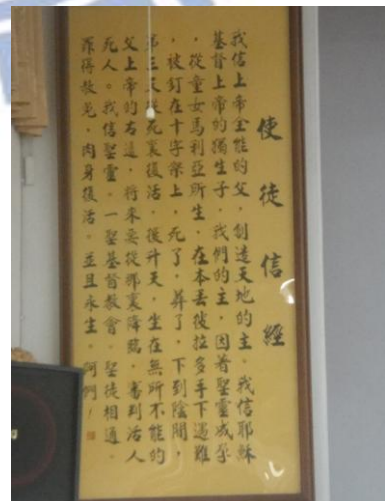 使徒信經
我信上帝全能的父，創造天地的主。我信耶穌
基督上帝的獨生子，我們的主，因着聖靈成孕
，從童女馬利亞所生，在本丟彼拉多手下遇難
，被釘在十字架上，死了，葬了，下到陰間，
第三天從死裏復活，後升天，坐在無所不能的
父上帝的右邊，將來要從那裏降臨，審判活人
死人。我信聖靈。一聖基督教會。聖徒相通。
罪得赦免，肉身復活。並且永生。阿們！